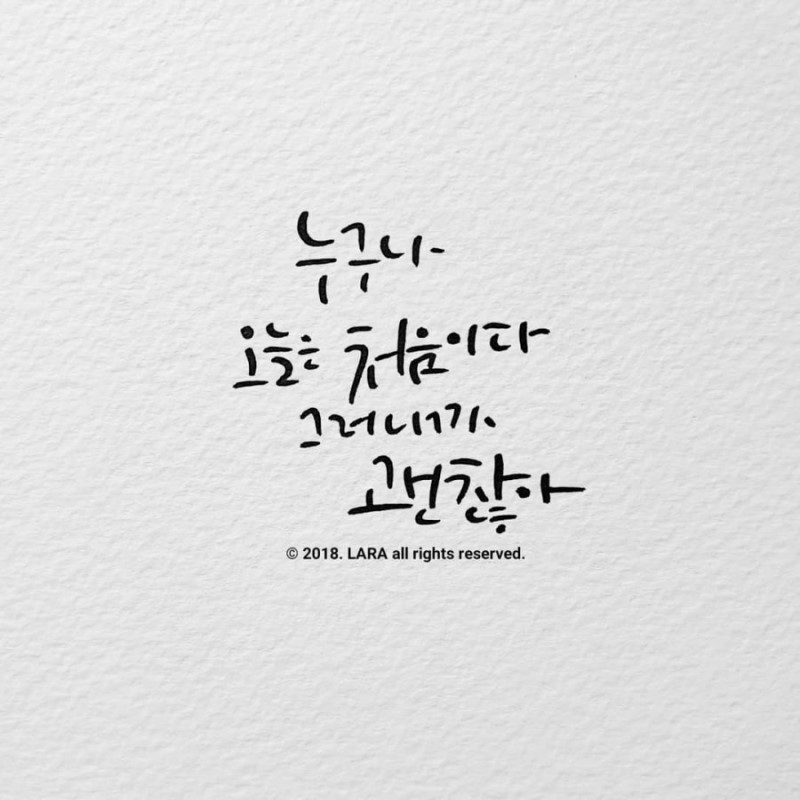 누구나
오늘은 처음이다
그러니까
괜찮아
© 2018. LARA all rights reserved.